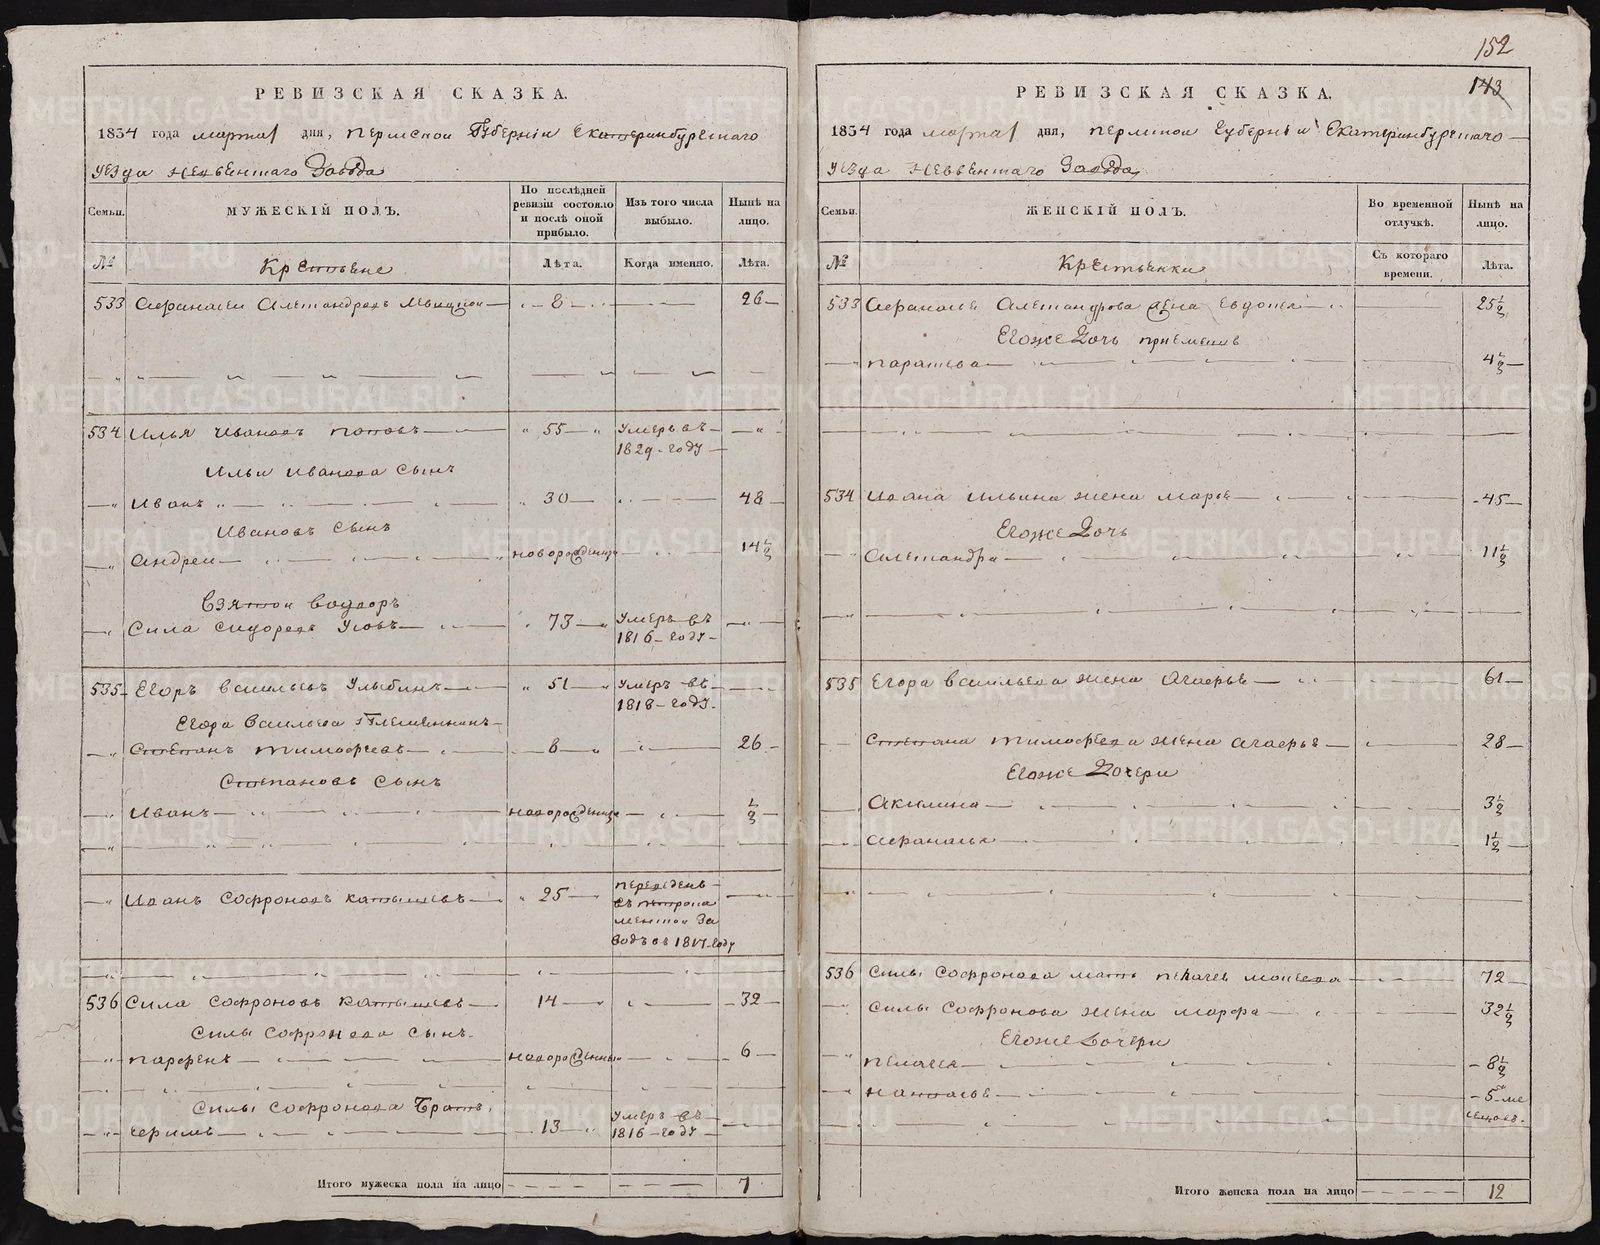 152
143
РЕВИЗСКАЯ СКАЗКА.
1834 года марта 1 дня, Пермской Губернiи Екатеринбургскаго
уезда Невьенскаго Завода
Семьи.
МУЖЕСКІЙ ПОЛЪ.
По послѣдней ревизіи состояло и послѣ оной прибыло.
Изъ того числа выбыло.
Нынѣ на лицо.
№
Крестьяне
Лѣта.
Когда именно.
Лѣта.
533 Афанасеи Александровъ 8 26
534 Илья Ивановъ Поповъ 55 Умеръ въ
1829 году
Ильи Иванова сынъ
Иванъ 30 48
Ивановъ сынъ
Андреи новорожденны 14 1/2
Взятои водворъ
Сила Сидоровъ Усовъ 73 Умеръ въ
1816 году
535 Егоръ Васильевъ Улыбинъ 51 Умеръ въ
1818 году
Егора Васильева Племенникъ
Степанъ Тимофеевъ 8 26
Степановъ сынъ
Иванъ новорожденны 1/2
Иванъ Софроновъ Катышевъ 25 переведенъ
въ петрока
менскои за
водъ въ 1817 году
536 Сила Софроновъ Катышевъ 14 32
Силы Софронова сынъ
Парфенъ новорожденны 6
Силы Софронова Братъ
Ефимъ 13 Умеръ въ
1816 году
Итого мужеска пола на лицо 7
РЕВИЗСКАЯ СКАЗКА.
1834 года марта 1 дня, Пермской Губернiи Екатеринбургскаго
уезда Невьенскаго Завода
Семьи.
ЖЕНСКІЙ ПОЛЪ.
Во временной отлучкѣ.
Нынѣ на лицо.
№
Крестьянки
Съ котораго времени.
Лѣта.
533 Афанасья Александрова жена Евдокея 25 1/2
Егоже Дочь приемная
Парасева 4 1/2
534 Ивана Ильина жена Марья 45
Егоже Дочь
Александра 11 1/2
535 Егора Васильева жена Агафья 61
Степана Тимофеева жена Агафья 28
Егоже Дочери
Акилина 3 1/2
Афанасья 1 1/2
536 Силы Софронова мать Пелагея Мосеева 72
Силы Софронова жена Марфа 32 1/2
Егоже Дочери
Пелагея 8 1/2
Наталья 5 ме
сецовъ
Итого женска пола на лицо 12
METRIKI.GASO-URAL.RU